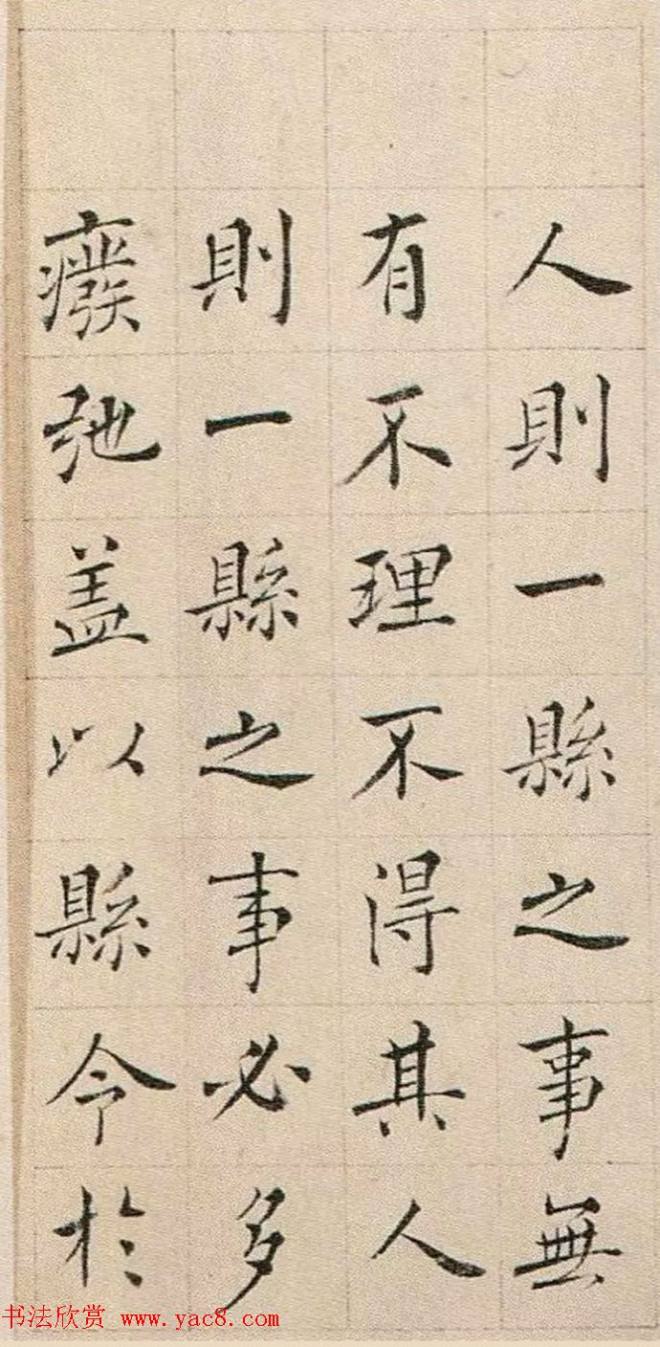 人則一縣之事無
有不理不得其人
則一縣之事必多
癈弛盖以縣令於
书法欣赏 www.yac8.com